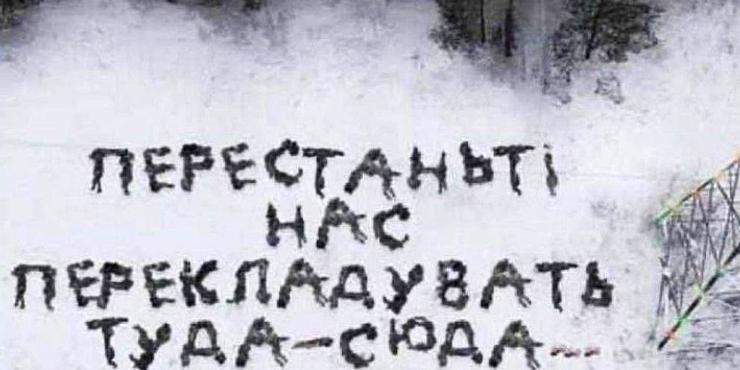 ПЕРЕСТАНЬТІ
НАС
ПЕРЕКЛАДУВАТЬ
ТУДА-СЮДА...